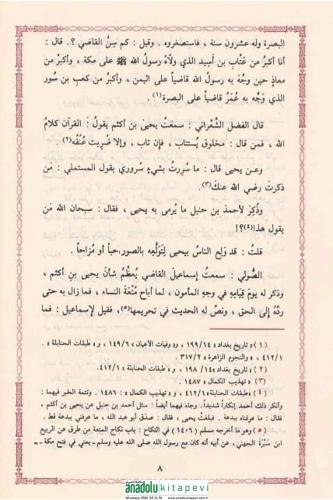 البصرة وله عشرون سنة ، فاستصغروه . وقيل : كم سِنُّ القاضي ؟. قال :
أنا أكبرُ من عَتَّاب بن أَسِيد الذي ولّاهُ رسولُ الله ﷺ على مكة ، وأكبرُ من
معاذٍ حين وَجَّه به رسولُ الله قاضياً على اليمن ، وأكبرُ من كعب بن سُور
الذي وَجَّه به عُمَرُ قاضياً على البصرة(١).
قال الفضل الشَّعْراني : سمعتُ يحيى بن أكثم يقولُ : القرآن كلامُ
الله ، فمن قال : مخلوق يُستتاب ، فإن تاب ، وإلا ضُربت عُنُقُه(٢).
وعن يحيى قال : ما سُرِرتُ بشيءٍ سُروري بقول المستملي : مَن
ذكرتَ رضي الله عنك(٣).
وذُكِرَ لأحمدَ بن حنبل ما يُرمى به يحيى ، فقال : سبحان الله مَن
يقول هذا(٤)؟!
قلتُ : قد وَلِع الناسُ بيحيى لِتَوَلُّعِه بالصور، حباً أو مُزاحاً .
الصُّولي : سمعتُ إسماعيلَ القاضي يُعظِّمُ شأنَ يحيى بن أكثم ،
وذكر له يومَ قِيامِه في وجهِ المأمون ، لما أباح مُتْعَةَ النساء ، فما زال به حتى
ردَّه إلى الحق ، ونصَّ له الحديث في تحريمها(٥)، فقيل لإسماعيل : فما
(١) « تاريخ بغداد » ١٩٩/١٤ ، و« وفيات الأعيان » ١٤٩/٦ ، و« طبقات الحنابلة »
٤١٢/١ ، و« النجوم الزاهرة » ٣١٧/٢ .
(٢) « تاريخ بغداد » ١٩٨/١٤ ، و« طبقات الحنابلة » ٤١٢/١ .
(٣) « تهذيب الكمال » ١٤٨٧ .
(٤) « طبقات الحنابلة » ٤١٢/١ ، و« تهذيب الكمال » : ١٤٨٦ . وتتمة الخبر فيهما :
وأنكر ذلك أحمد إنكاراً شديداً. وجاء فيهما أيضاً : سئل أحمد بن حنبل عن يحيى بن أكثم ،
فقال : ما عرفناه ببدعة. فبلغت يحيى ، فقال : صدق أبو عبد الله ، ما عرفني ببدعة قط .
(٥) وهو ما أخرجه مسلم (١٤٠٦) في النكاح : باب نكاح المتعة من طرق عن الربيع
ابن سَبْرَة الجهني، عن أبيه أنه كان مع رسول الله صلى الله عليه وسلم ـ يعني في فتح مكة ـ
٨
anadolukitapevi